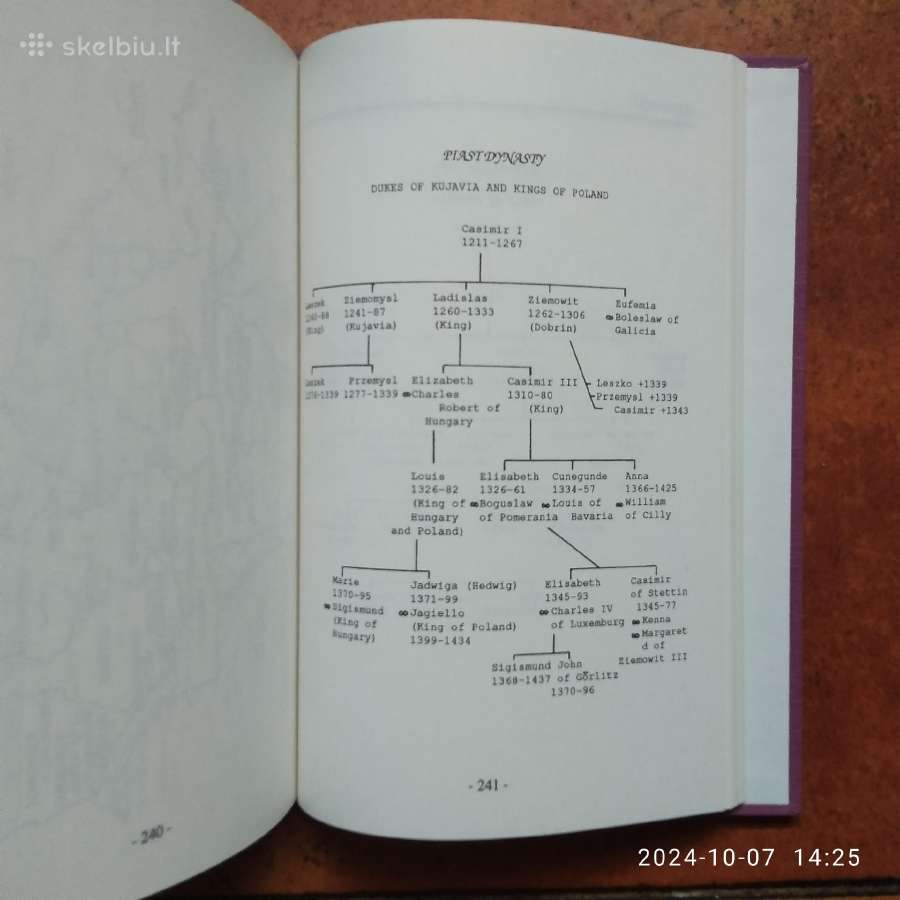 skelbiu.lt
PIAST DYNASTY
DUKES OF KUJAVIA AND KINGS OF POLAND
Casimir I
1211-1267
Leszek
(King)
Ziemomysl
1241-87
(Kujavia)
Ladislas
1260-1333
(King)
Ziemowit
1262-1306
(Dobrin)
Eufemia
∞Boleslaw of
Galicia
Leszek
Przemysl
1277-1339
Elizabeth
∞Charles
Robert of
Hungary
Casimir III
1310-80
(King)
Leszko +1339
Przemysl +1339
Casimir +1343
Louis
1326-82
(King of
Hungary
and Poland)
Elisabeth
1326-61
∞Boguslaw
of Pomerania
Cunegunde
1334-57
∞Louis of
Bavaria
Anna
1366-1425
∞William
of Cilly
Marie
1370-95
∞Sigismund
(King of
Hungary)
Jadwiga (Hedwig)
1371-99
∞Jagiello
(King of Poland)
1399-1434
Elisabeth
1345-93
∞Charles IV
of Luxemburg
Casimir
of Stettin
1345-77
∞Kenna
∞Margaret
d of
Ziemowit III
Sigismund
1368-1437
John
of Görlitz
1370-96
- 240 -
- 241 -
2024-10-07 14:25